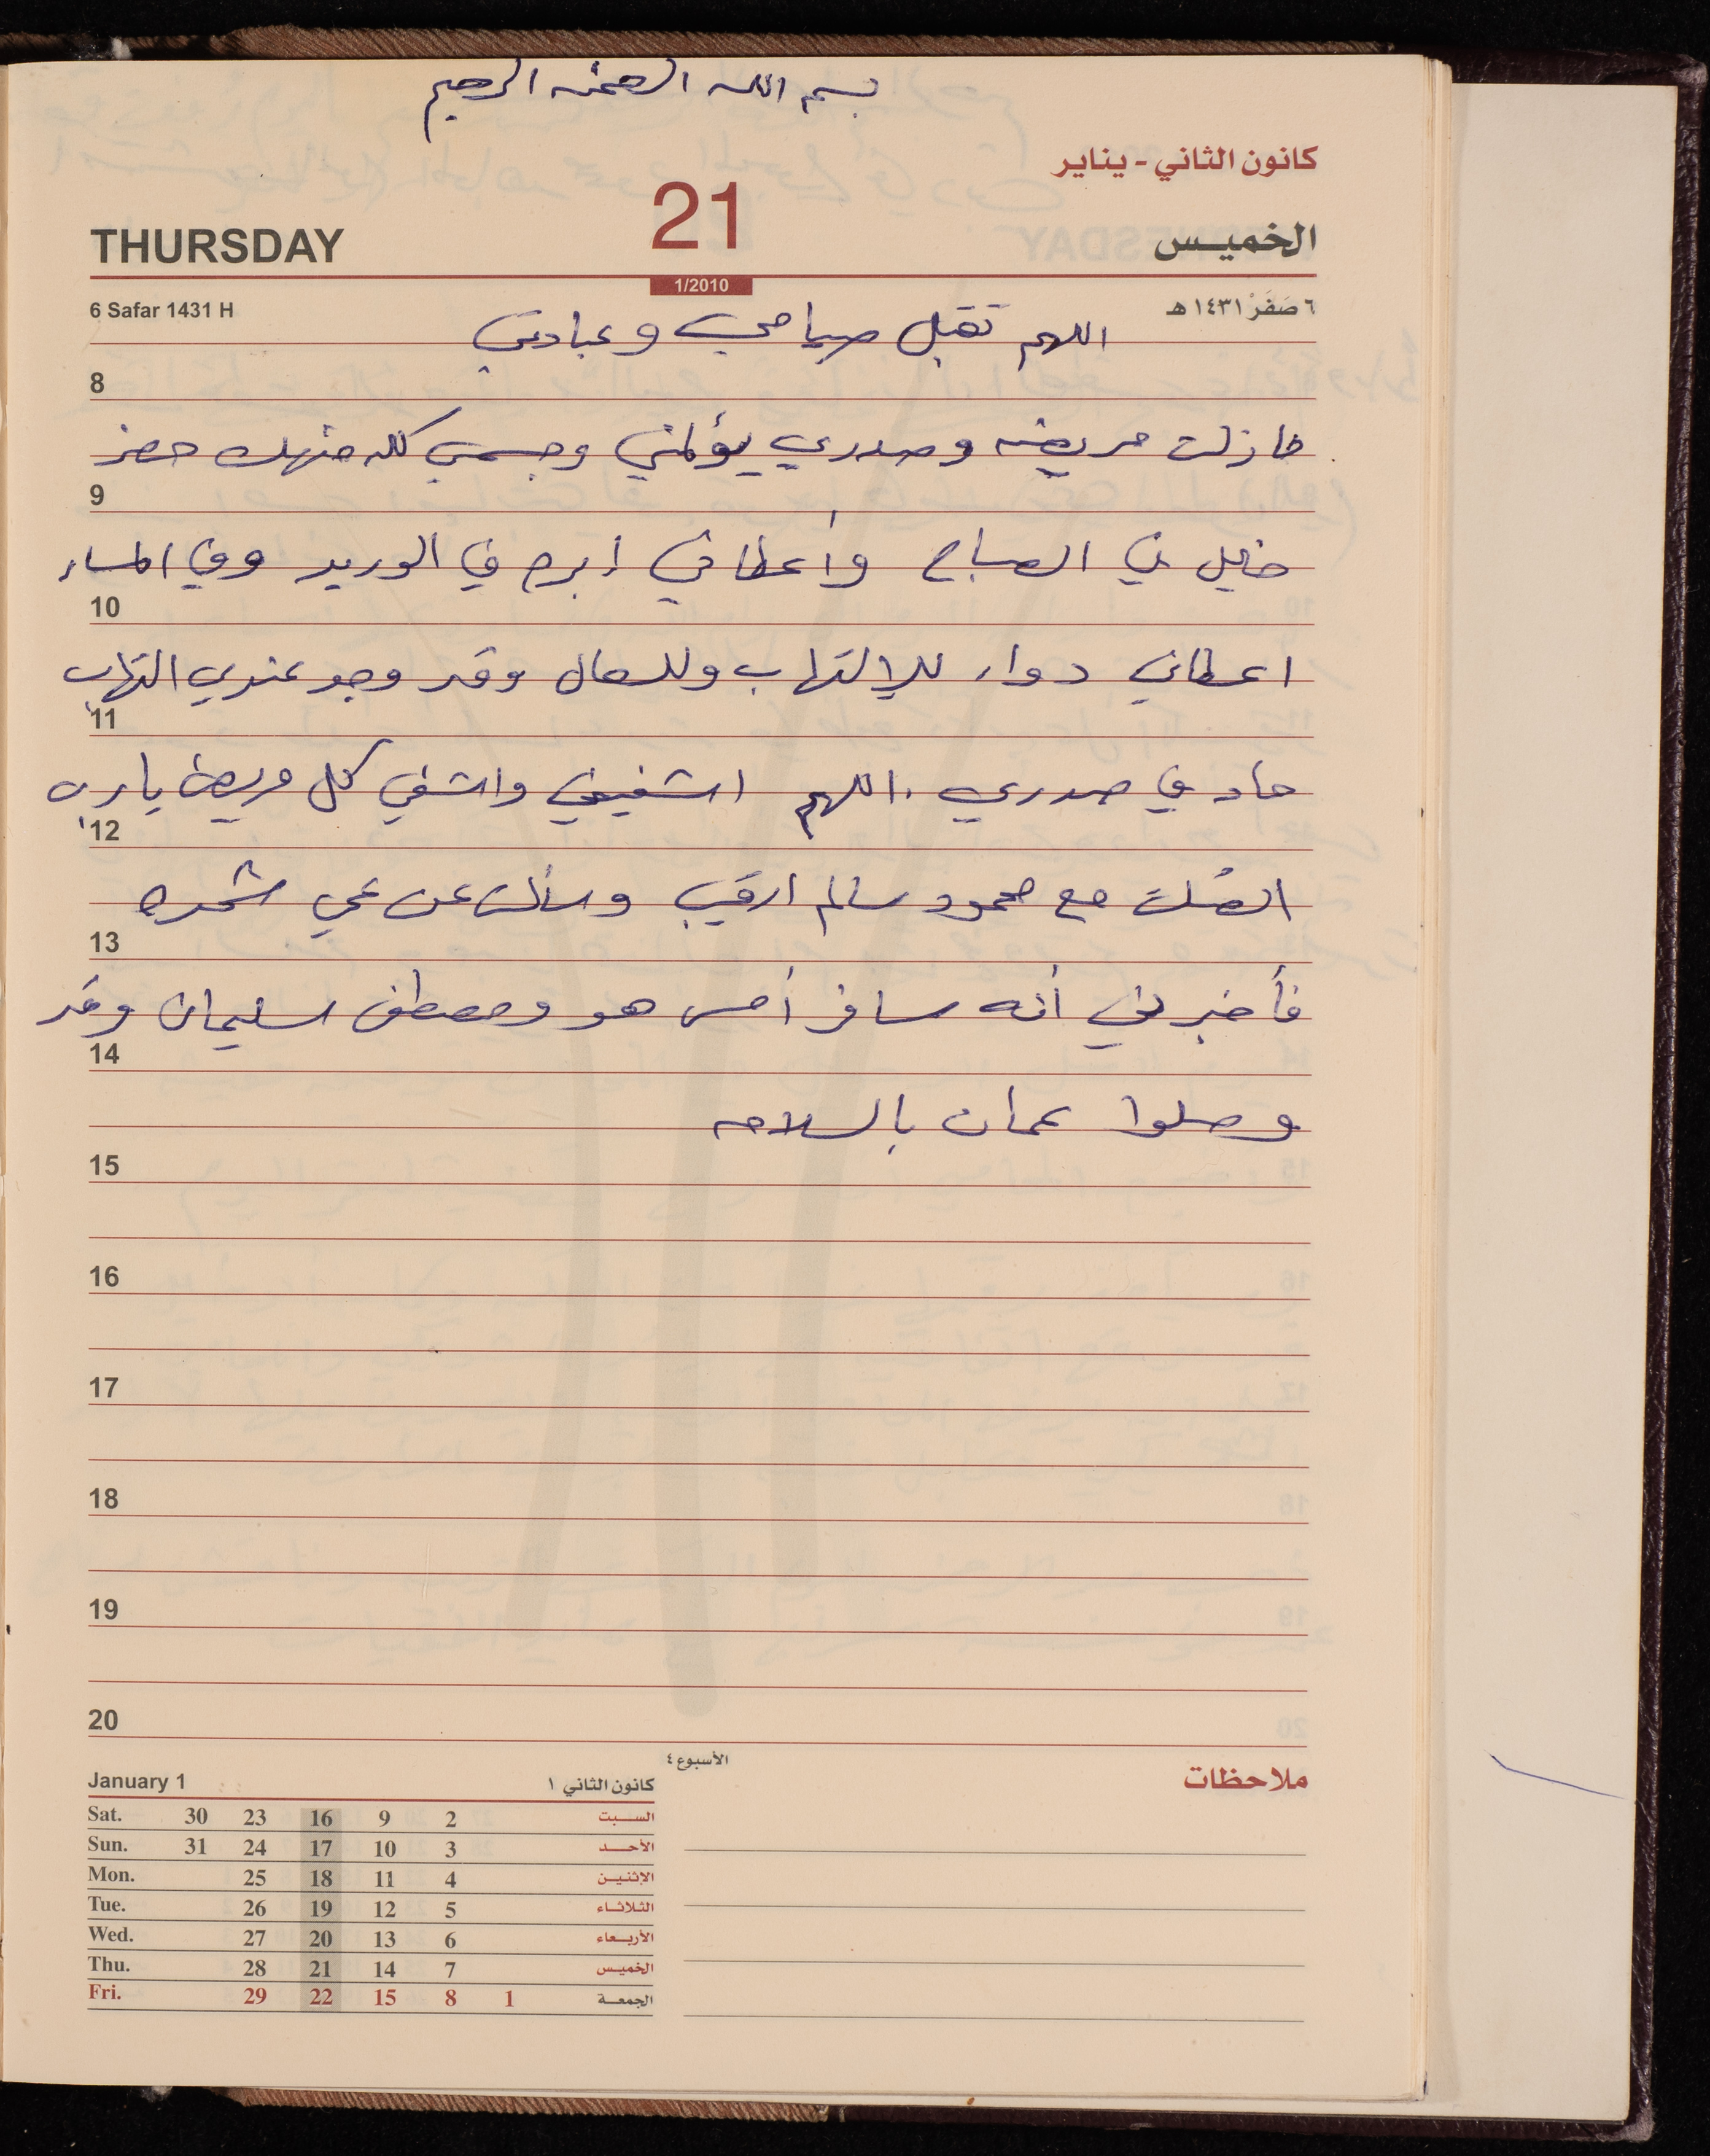 بسم الله الرحمن الرحيم
كانون الثاني - يناير
THURSDAY 21 الخميس
1/2010
6 Safar 1431 H ٦ صَفَرْ ١٤٣١ هـ
اللهم تقبل صيامي وعبادتي
8
ما زلت مريضه وصدري يؤلمني وجسمي كله منهك حضر
9
خليل في الصباح وأعطاني إبره في الوريد وفي المساء
10
اعطاني دواء للإلتهاب وللسعال وقد وجد عندي التهاب
11
حاد في صدري . اللهم اشفيني واشفي كل مريض يا رب
12
اتصلت مع محمود سالم ارقيب وسألت عن عمي شحده
13
فأخبرني أنه سافر أمس هو ومصطفى سليمان وقد
14
وصلوا عمان بالسلامه
15
16
17
18
19
20
الأسبوع ٤
ملاحظات
January 1 كانون الثاني ١
Sat. 30 23 16 9 2 السبت
Sun. 31 24 17 10 3 الأحد
Mon. 25 18 11 4 الإثنين
Tue. 26 19 12 5 الثلاثاء
Wed. 27 20 13 6 الأربعاء
Thu. 28 21 14 7 الخميس
Fri. 29 22 15 8 1 الجمعة